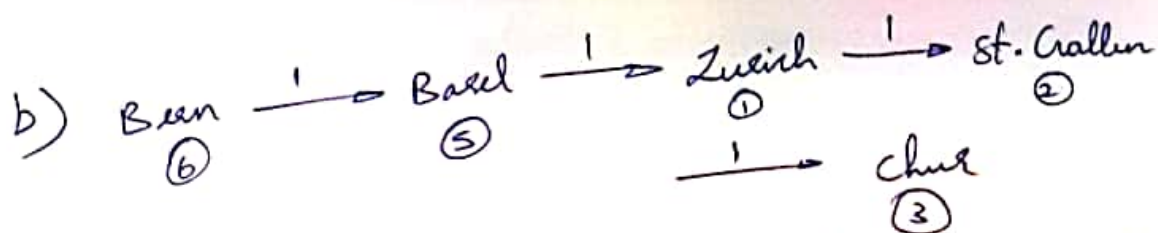 b) Bern —1→ Basel —1→ Zurich —1→ St. Gallen
⑥ ⑤ ① ②
—1→ Chur
③